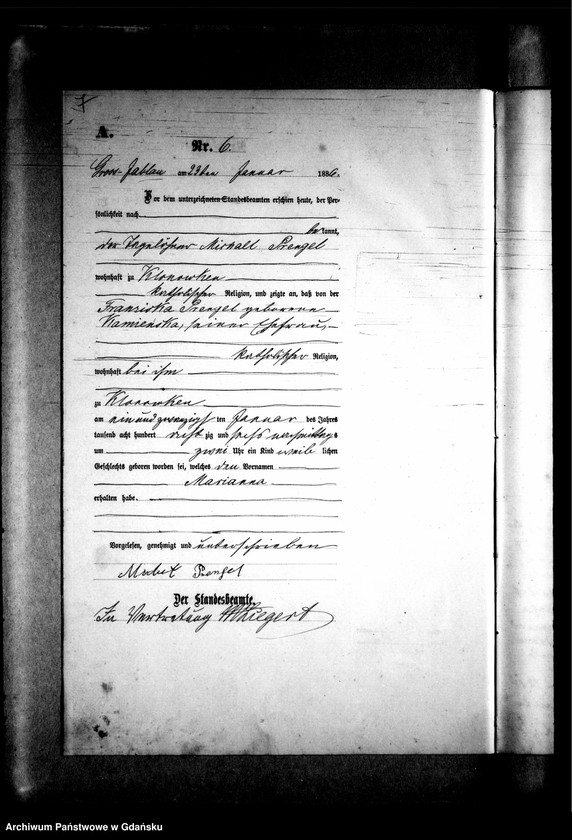 7
A.
Nr. 6.
Gross-Jablau am 23ten Januar 1886.
Vor dem unterzeichneten Standesbeamten erschien heute, der Per-
sönlichkeit nach
be kannt,
der Tagelöhner Michael Prengel
wohnhaft zu Klonowken
katholischer Religion, und zeigte an, daß von der
Franziska Prengel geborene
Kamienska, seiner Ehefrau,
katholischer Religion,
wohnhaft bei ihm
zu Klonowken
am einundzwanzigsten Januar des Jahres
tausend acht hundert achtzig und sechs nachmittags
um zwei Uhr ein Kind weib lichen
Geschlechts geboren worden sei, welches den Vornamen
Marianna
erhalten habe.
Vorgelesen, genehmigt und unterschrieben
Prengel
Der Standesbeamte.
In Vertretung
Archiwum Państwowe w Gdańsku